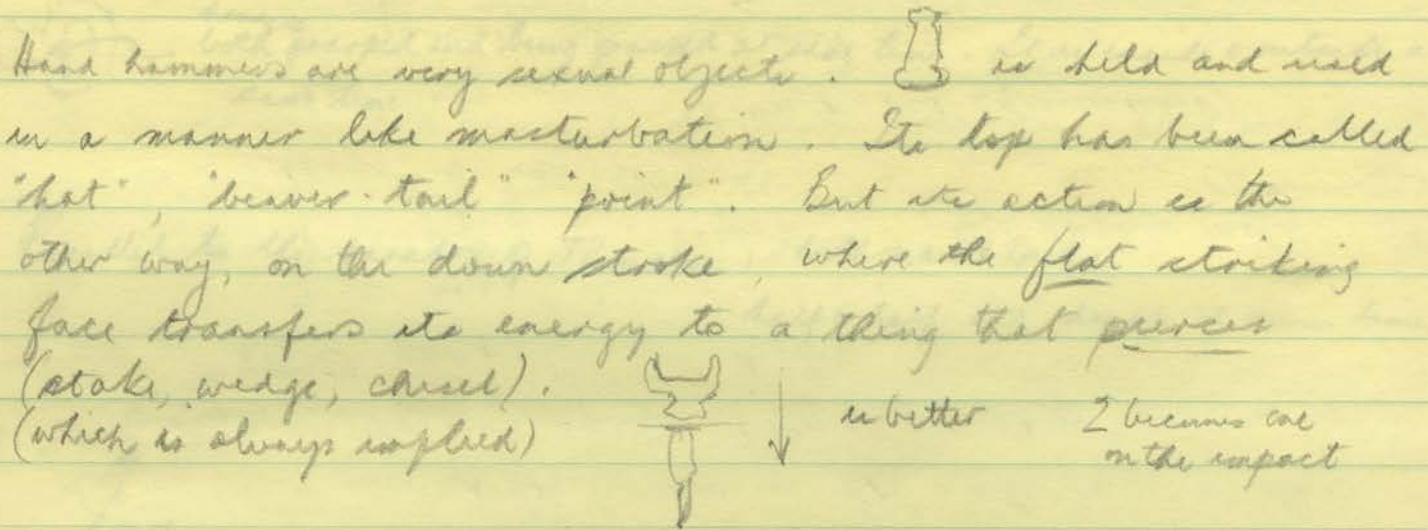 Hand hammers are very sexual objects. is held and used
in a manner like masturbation. Its top has been called
"hat", "beaver-tail" "point". But its action is the
other way, on the down stroke, where the flat striking
face transfers its energy to a thing that pierces
(stake, wedge, chisel).
(which is always implied)
is better
2 becomes one
on the impact